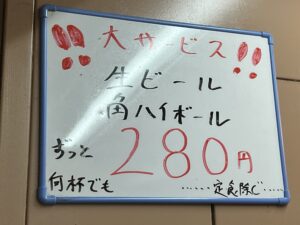 !! 大サービス !!
生ビール
角ハイボール
ずっと 280円
何杯でも ……定食除く……